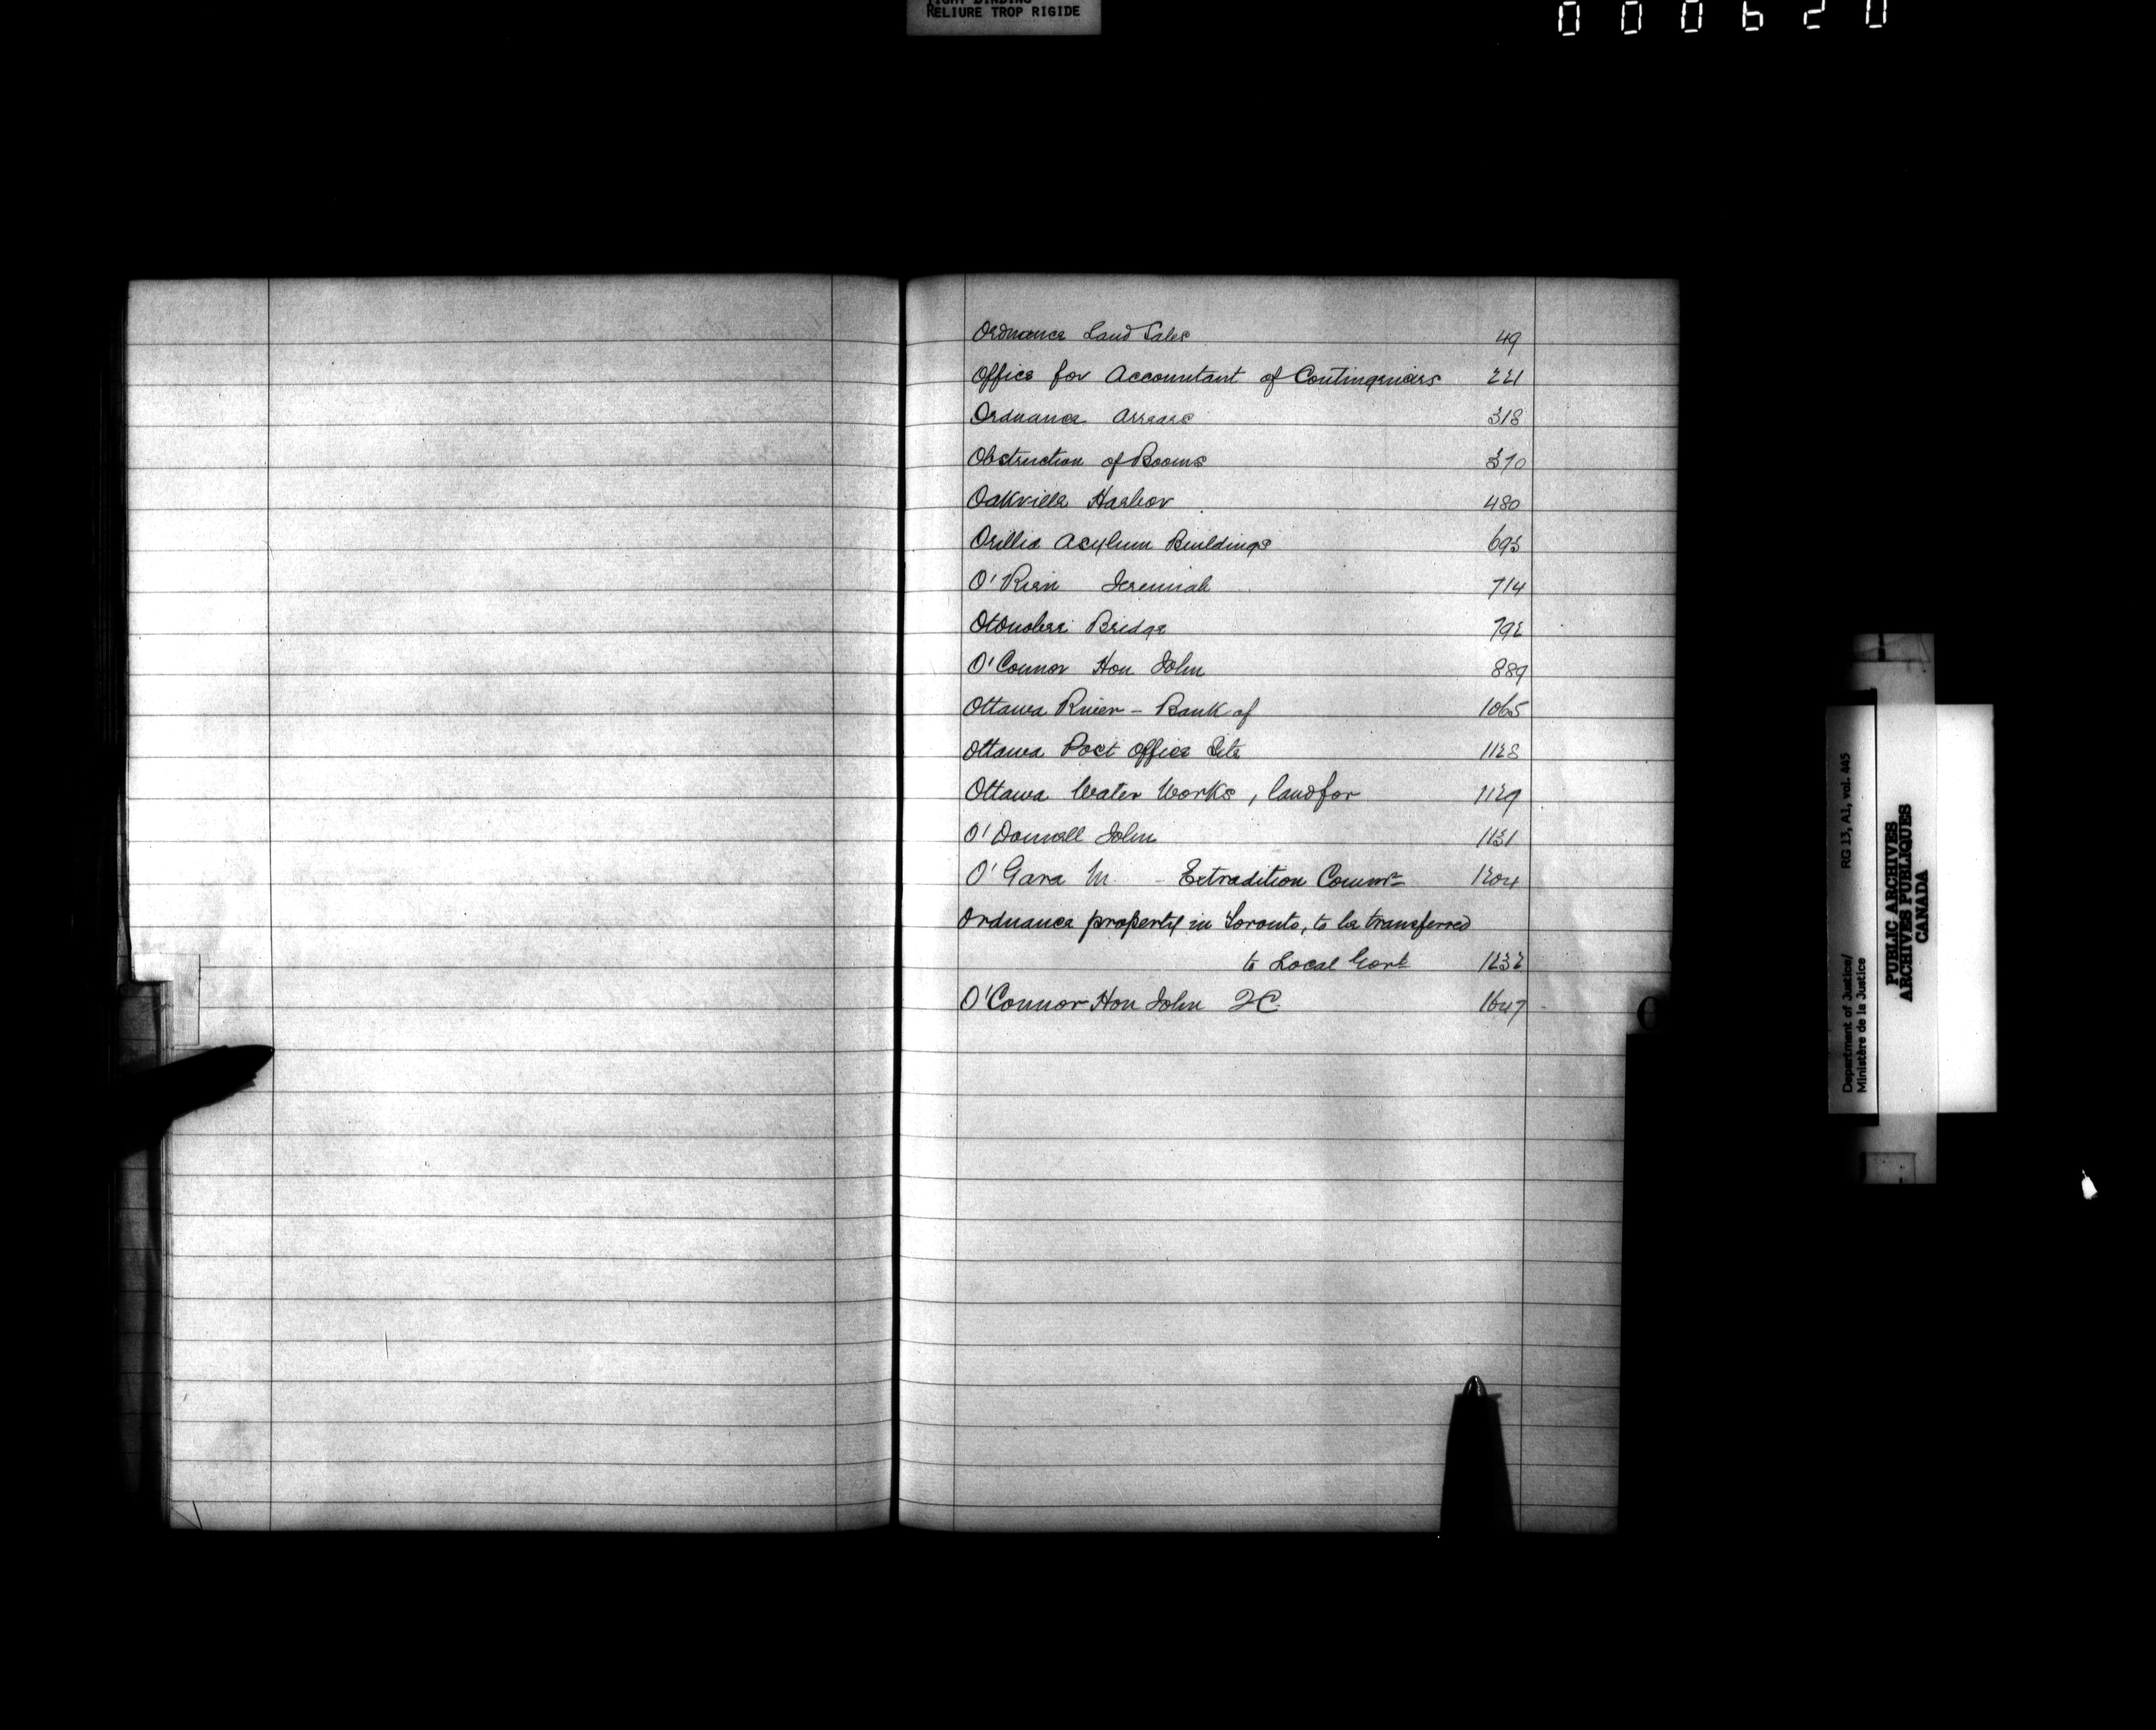 TIGHT BINDING
RELIURE TROP RIGIDE
000620
Ordnance Land Sales 49
Office for Accountant of Contingencies 221
Ordnance Arrears 318
Obstruction of Booms 370
Oakville Harbor 480
Orillia Asylum Buildings 693
O' Jeremiah 714
Otonobee Bridge 792
O'Connor Hon John 889
Ottawa River - Bank of 1065
Ottawa Post Office Site 1128
Ottawa Water Works, land for 1129
O'Donnell John 1131
O'Gara M. - Extradition Commr 1204
Ordnance property in Toronto, to be transferred
to Local Govt 1232
O'Connor Hon John QC. 1647
O
Department of Justice/
Ministère de la Justice
RG 13, A1, vol. 445
PUBLIC ARCHIVES
ARCHIVES PUBLIQUES
CANADA